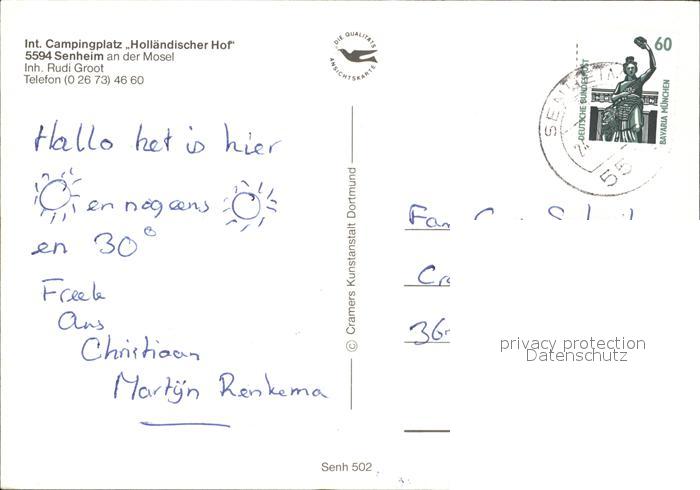 Int. Campingplatz „Holländischer Hof“
5594 Senheim an der Mosel
Inh. Rudi Groot
Telefon (0 26 73) 46 60
DIE QUALITÄTS
ANSICHTSKARTE
60
DEUTSCHE BUNDESPOST
BAVARIA MÜNCHEN
Hallo het is hier
en nog eens
en 30°
Freek
Ans
Christiaan
Martijn Renkema
© Cramers Kunstanstalt Dortmund
Fam
36
privacy protection
Datenschutz
Senh 502